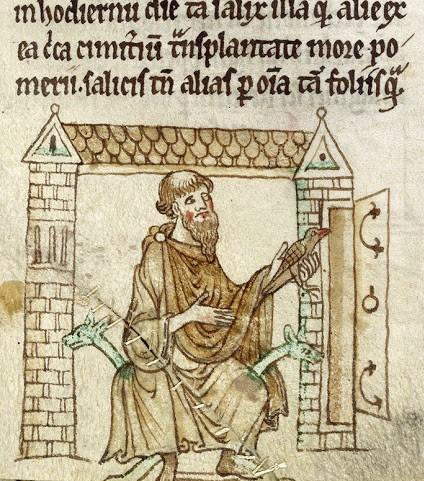 inhodiernū die tā salix illa qᷓ alie ex
ea c̄ca cimit̄iū tᷓnsplantate more po/
merii. salicis tn̄ alias ꝑ oīa tā foliis qᷓ.